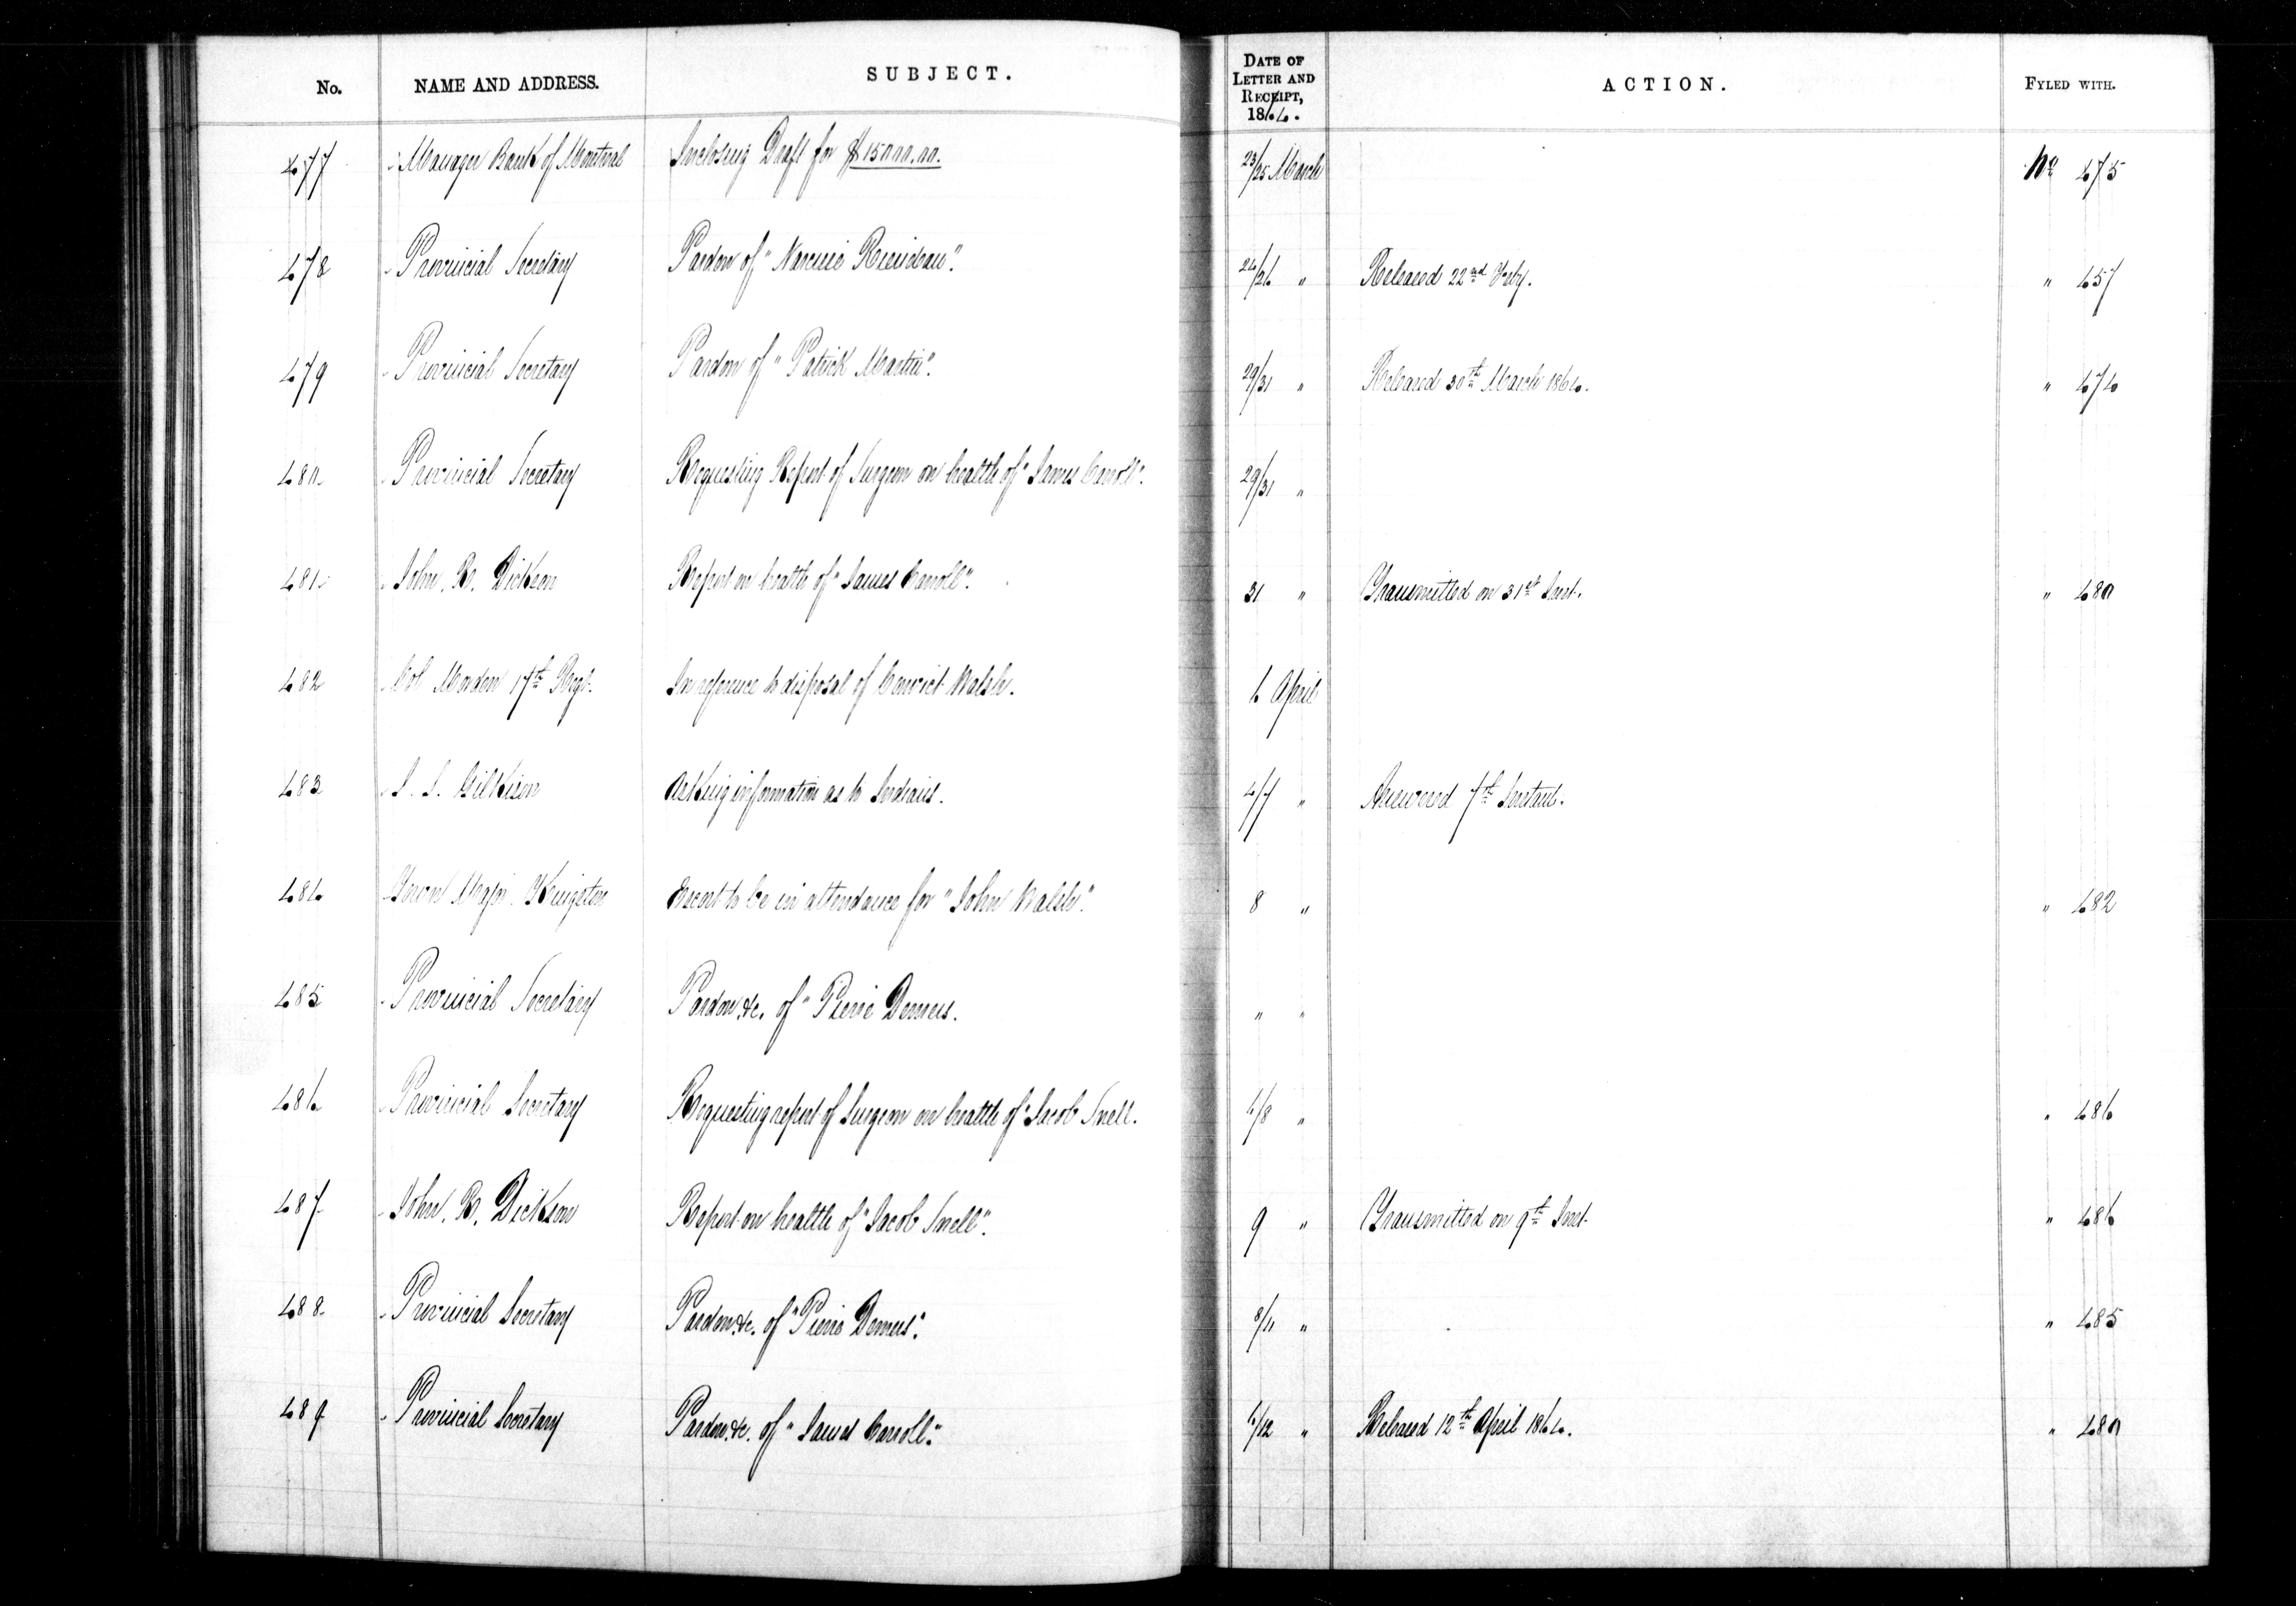 No. NAME AND ADDRESS. SUBJECT. DATE OF LETTER AND RECEIPT, 1864. ACTION. FYLED WITH.
477 Manager Bank of Montreal Inclosing Draft for $15000.00. 23/25 March No 475
478 Provincial Secretary Pardon of "Narcisse Riendeau". 24/26 " Released 22nd Feby. " 457
479 Provincial Secretary Pardon of "Patrick Martin". 29/31 " Released 30th March 1864. " 474
480 Provincial Secretary Requesting Report of Surgeon on health of "James Carroll". 29/31 "
481 John. R. Dickson Report on health of "James Carroll". 31 " Transmitted on 31st Inst. " 480
482 Col Morden 17th Regt. In reference to disposal of Convict Walsh. 6 April
483 J. T. Gilkison Asking information as to Indians. 4/7 " Answered 7th Instant.
484 Town Major Kingston Escort to be in attendance for "John Walsh". 8 " " 482
485 Provincial Secretary Pardon &c. of "Pierre Demers. " "
486 Provincial Secretary Requesting report of Surgeon on health of "Jacob Snell. 6/8 " " 486
487 John. R. Dickson Report on health of "Jacob Snell". 9 " Transmitted on 9th Inst. " 486
488 Provincial Secretary Pardon &c. of "Pierre Demers". 8/11 " " 485
489 Provincial Secretary Pardon &c. of "James Carroll". /12 " Released 12th April 1864. " 480